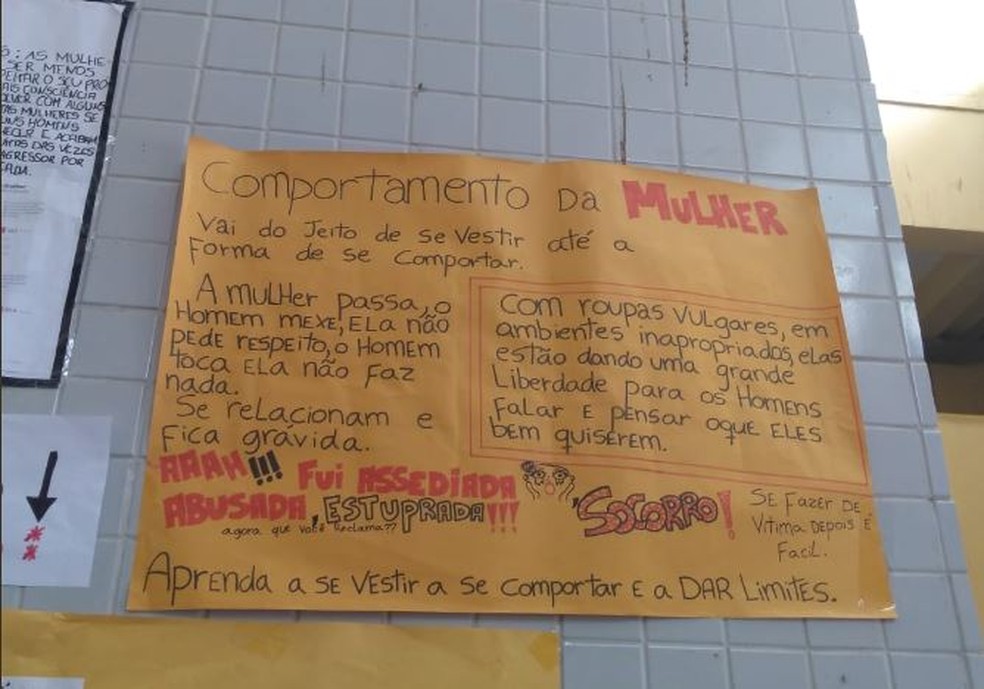 : AS MULHE
SER MENOS
O SEU PRO
CONSCIÊNCIA
COM ALGUNS
MULHERES SE
HOMENS
E ACABAM
DAS VEZES
AGRESSOR POR
Comportamento Da MULHER
Vai do Jeito de se Vestir até a
Forma de se Comportar.
A MULHer passa, o
Homem MEXE, ELa não
PEDE RESPEITO, o HOMEM
Toca ELa não Faz
nada.
Se relacionam e
Fica grávida.
Com roupas VULgares, em
ambientes inapropriados, elas
estão dando uma grande
Liberdade para os Homens
Falar E pensar oque ELES
bem quiserem.
AAAH!!! Fui ASSEDIADA
ABUSADA, ESTUPRADA!!!
agora que você reclama??
SOCORRO!
SE Fazer DE
Vítima DEPOIS É
Facil.
Aprenda a SE VEStir a Se Comportar E a DAR Limites.